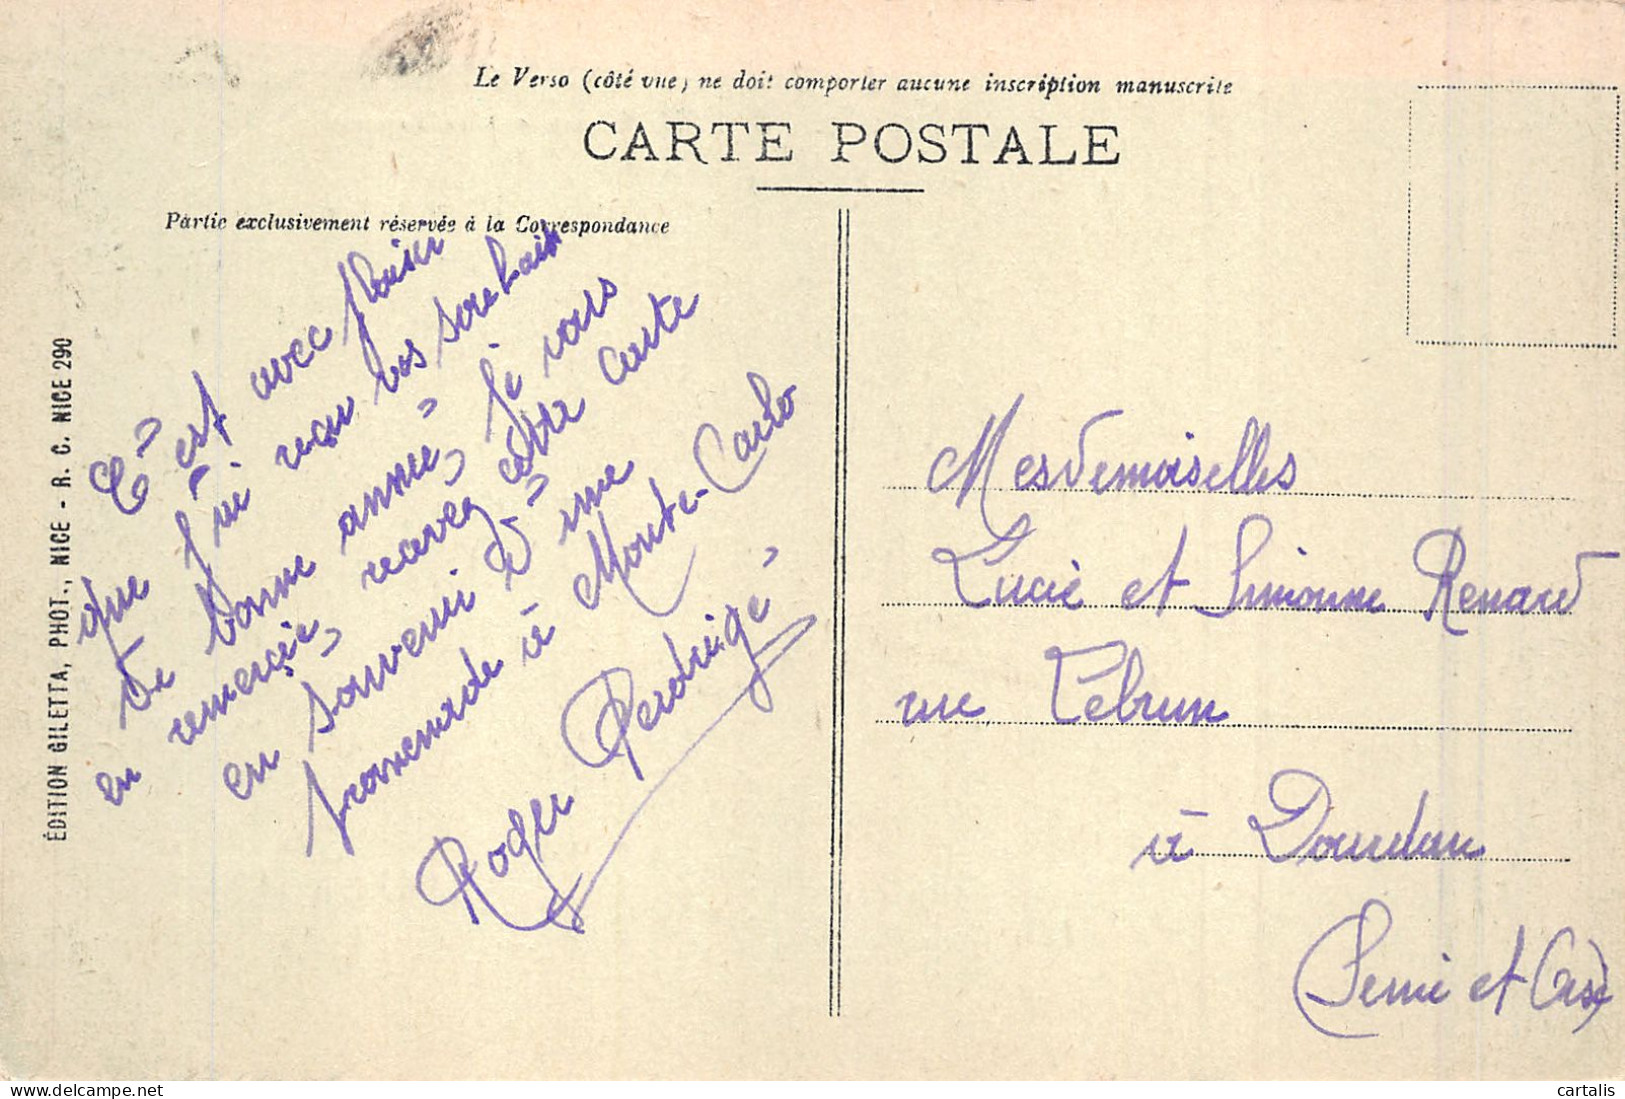 Le Verso (côté vue) ne doit comporter aucune inscription manuscrite
CARTE POSTALE
Partie exclusivement réservée à la Correspondance
C'est avec plaisir
que j'ai reçu vos souhaits
de bonne année, je vous
en remercie, recevez cette carte
en souvenir d'une
promenade à Monte-Carlo
Roger Perdrigé
Mesdemoiselles
Lucie et Simonne Renard
rue Lebrun
à Dourdan
(Seine et Oise)
ÉDITION GILETTA, PHOT., NICE - R. C. NICE 290
delcampe.net
cartalis